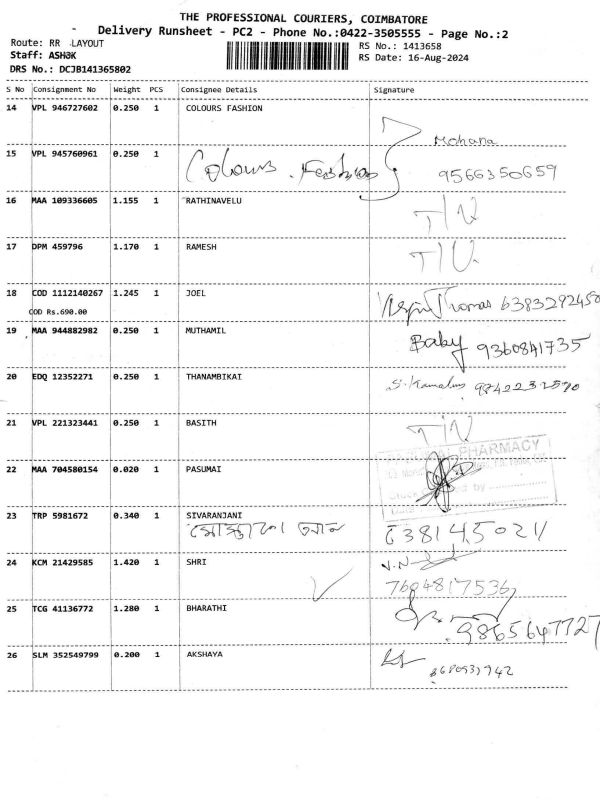 THE PROFESSIONAL COURIERS, COIMBATORE
Delivery Runsheet - PC2 - Phone No.:0422-3505555 - Page No.:2
Route: RR LAYOUT
RS No.: 1413658
Staff: ASH3K
RS Date: 16-Aug-2024
DRS No.: DCJB141365802
S No Consignment No Weight PCS Consignee Details Signature
14 VPL 946727602 0.250 1 COLOURS FASHION
Mohana
15 VPL 945760961 0.250 1
Colours . Fashion 9566350659
16 MAA 109336605 1.155 1 RATHINAVELU
17 DPM 459796 1.170 1 RAMESH
18 COD 1112140267 1.245 1 JOEL Thomas 6383292450
COD Rs.690.00
19 MAA 944882982 0.250 1 MUTHAMIL Baby 9360841735
20 EDQ 12352271 0.250 1 THANAMBIKAI
21 VPL 221323441 0.250 1 BASITH
PHARMACY
22 MAA 704580154 0.020 1 PASUMAI
by
23 TRP 5981672 0.340 1 SIVARANJANI
24 KCM 21429585 1.420 1 SHRI
7604817536
25 TCG 41136772 1.280 1 BHARATHI
9865647727
26 SLM 352549799 0.200 1 AKSHAYA